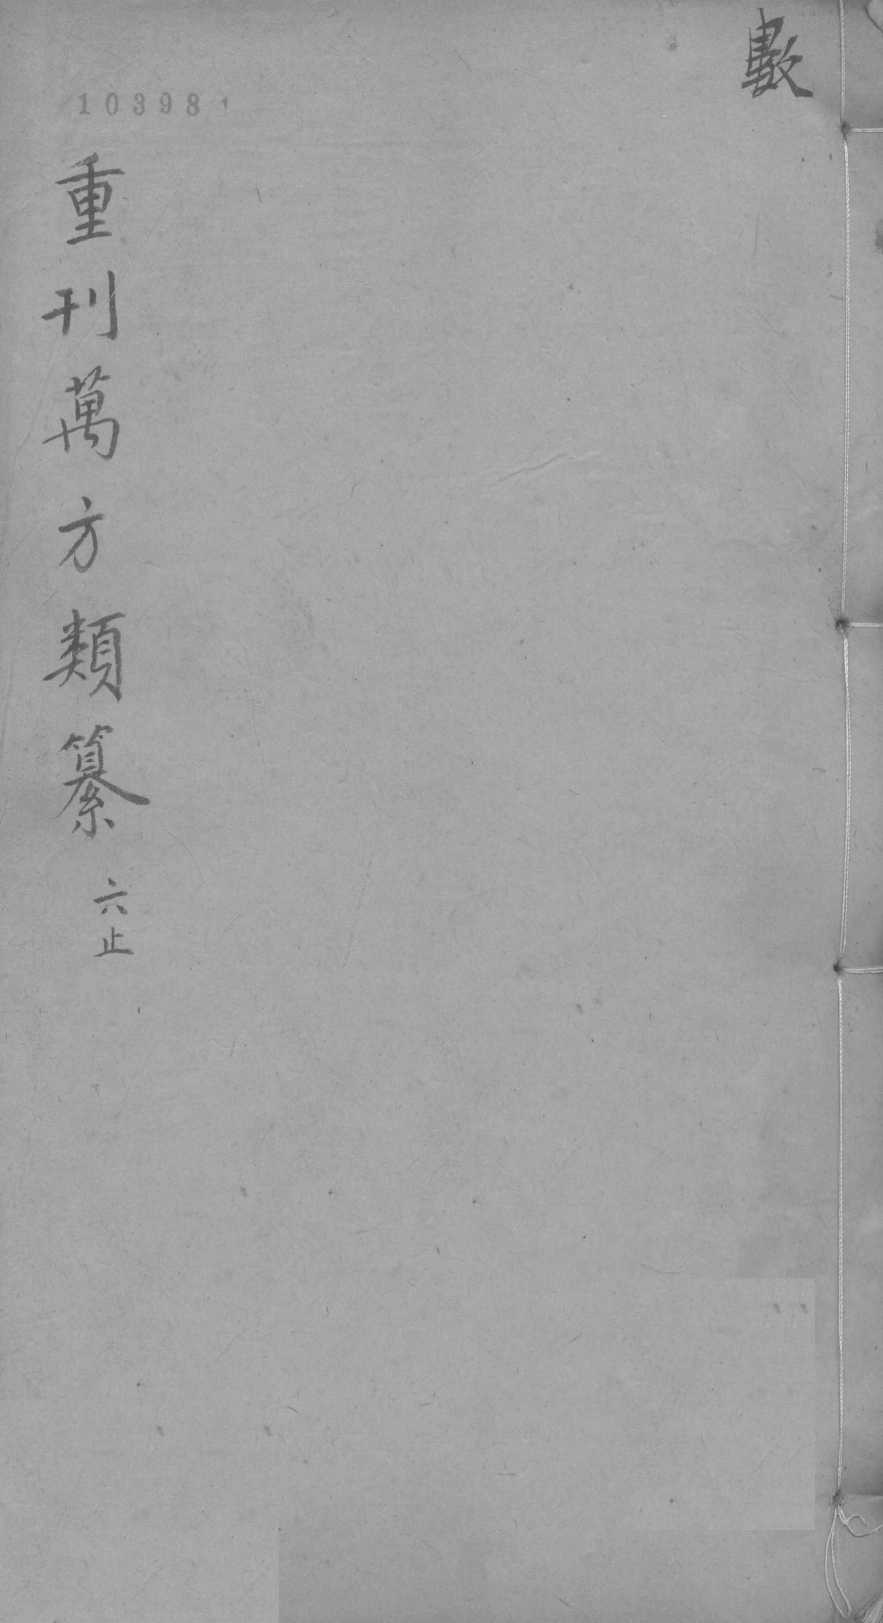 數
103981
重刊萬方類纂 六止